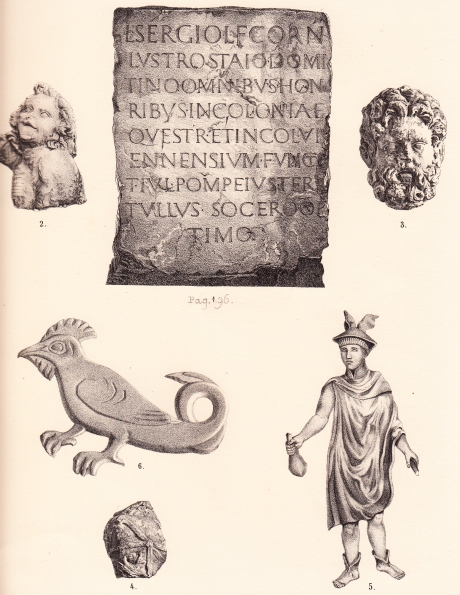 L·SERGIO L F CORN
LVSTROSTAIODOMI
TINO OMNIBVS HON
RIBVS IN COLONIA E
QVESTR ET IN COL VI
ENNENSIVM·FVNCT
T IVL POMPEIVS TER
TVLLVS·SOCERO O
TIMO
2.
3.
Pag. 196.
6.
4.
5.